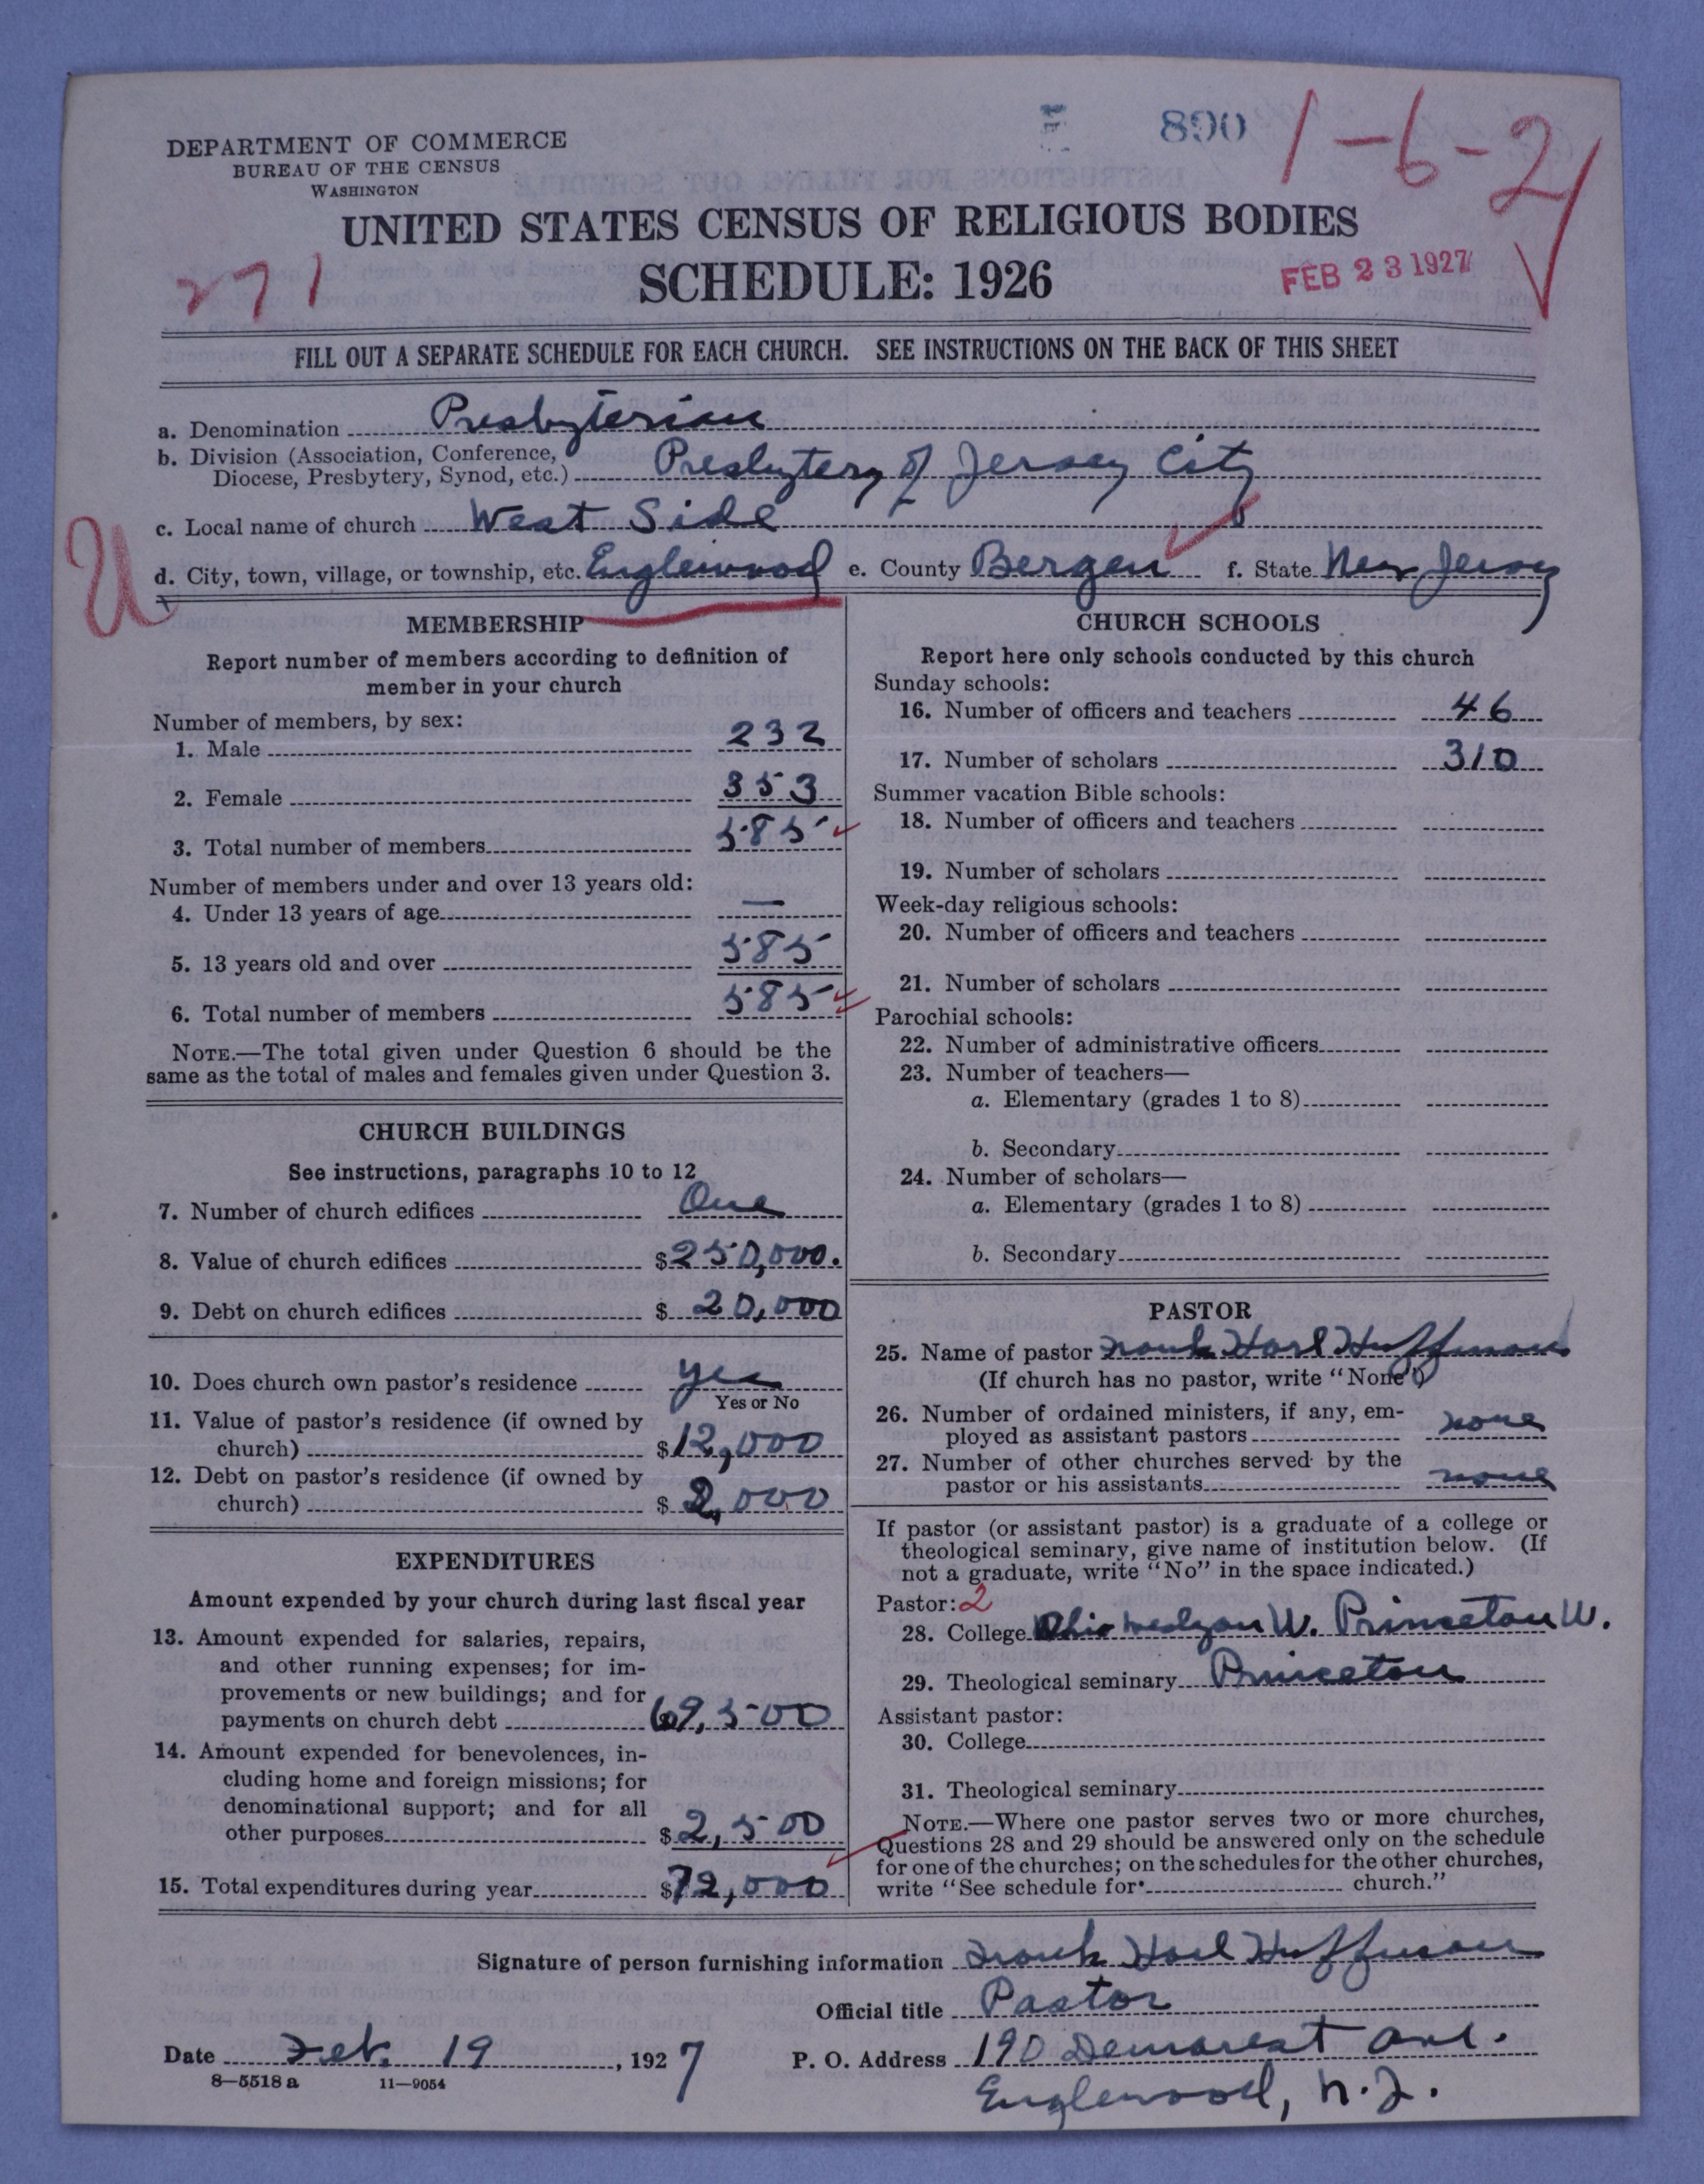 DEPARTMENT OF COMMERCE
BUREAU OF THE CENSUS
WASHINGTON
890
1-6-2
UNITED STATES CENSUS OF RELIGIOUS BODIES
271
SCHEDULE: 1926
FEB 23 1927
FILL OUT A SEPARATE SCHEDULE FOR EACH CHURCH. SEE INSTRUCTIONS ON THE BACK OF THIS SHEET
a. Denomination Presbyterian
b. Division (Association, Conference, Diocese, Presbytery, Synod, etc.) Presbytery of Jersey City
c. Local name of church West Side
U
d. City, town, village, or township, etc. Englewood e. County Bergen f. State New Jersey
MEMBERSHIP
Report number of members according to definition of
member in your church
Number of members, by sex:
1. Male 232
2. Female 353
3. Total number of members 585
Number of members under and over 13 years old:
4. Under 13 years of age —
5. 13 years old and over 585
6. Total number of members 585
NOTE.—The total given under Question 6 should be the
same as the total of males and females given under Question 3.
CHURCH BUILDINGS
See instructions, paragraphs 10 to 12
7. Number of church edifices One
8. Value of church edifices $250,000.
9. Debt on church edifices $ 20,000
10. Does church own pastor's residence yes
Yes or No
11. Value of pastor's residence (if owned by
church) $12,000
12. Debt on pastor's residence (if owned by
church) $ 2,000
EXPENDITURES
Amount expended by your church during last fiscal year
13. Amount expended for salaries, repairs,
and other running expenses; for im-
provements or new buildings; and for
payments on church debt 69,500
14. Amount expended for benevolences, in-
cluding home and foreign missions; for
denominational support; and for all
other purposes $2,500
15. Total expenditures during year $72,000
CHURCH SCHOOLS
Report here only schools conducted by this church
Sunday schools:
16. Number of officers and teachers 46
17. Number of scholars 310
Summer vacation Bible schools:
18. Number of officers and teachers
19. Number of scholars
Week-day religious schools:
20. Number of officers and teachers
21. Number of scholars
Parochial schools:
22. Number of administrative officers
23. Number of teachers—
a. Elementary (grades 1 to 8)
b. Secondary
24. Number of scholars—
a. Elementary (grades 1 to 8)
b. Secondary
PASTOR
25. Name of pastor Frank Huffman
(If church has no pastor, write "None")
26. Number of ordained ministers, if any, em-
ployed as assistant pastors none
27. Number of other churches served by the
pastor or his assistants none
If pastor (or assistant pastor) is a graduate of a college or
theological seminary, give name of institution below. (If
not a graduate, write "No" in the space indicated.)
Pastor: 2
28. College Ohio Wesleyan U. Princeton U.
29. Theological seminary Princeton
Assistant pastor:
30. College
31. Theological seminary
NOTE.—Where one pastor serves two or more churches,
Questions 28 and 29 should be answered only on the schedule
for one of the churches; on the schedules for the other churches,
write "See schedule for church."
Signature of person furnishing information Frank Huffman
Official title Pastor
Date Feb. 19, 1927 P. O. Address 190 Demarest Ave.
8—5518a 11—9054
Englewood, N.J.